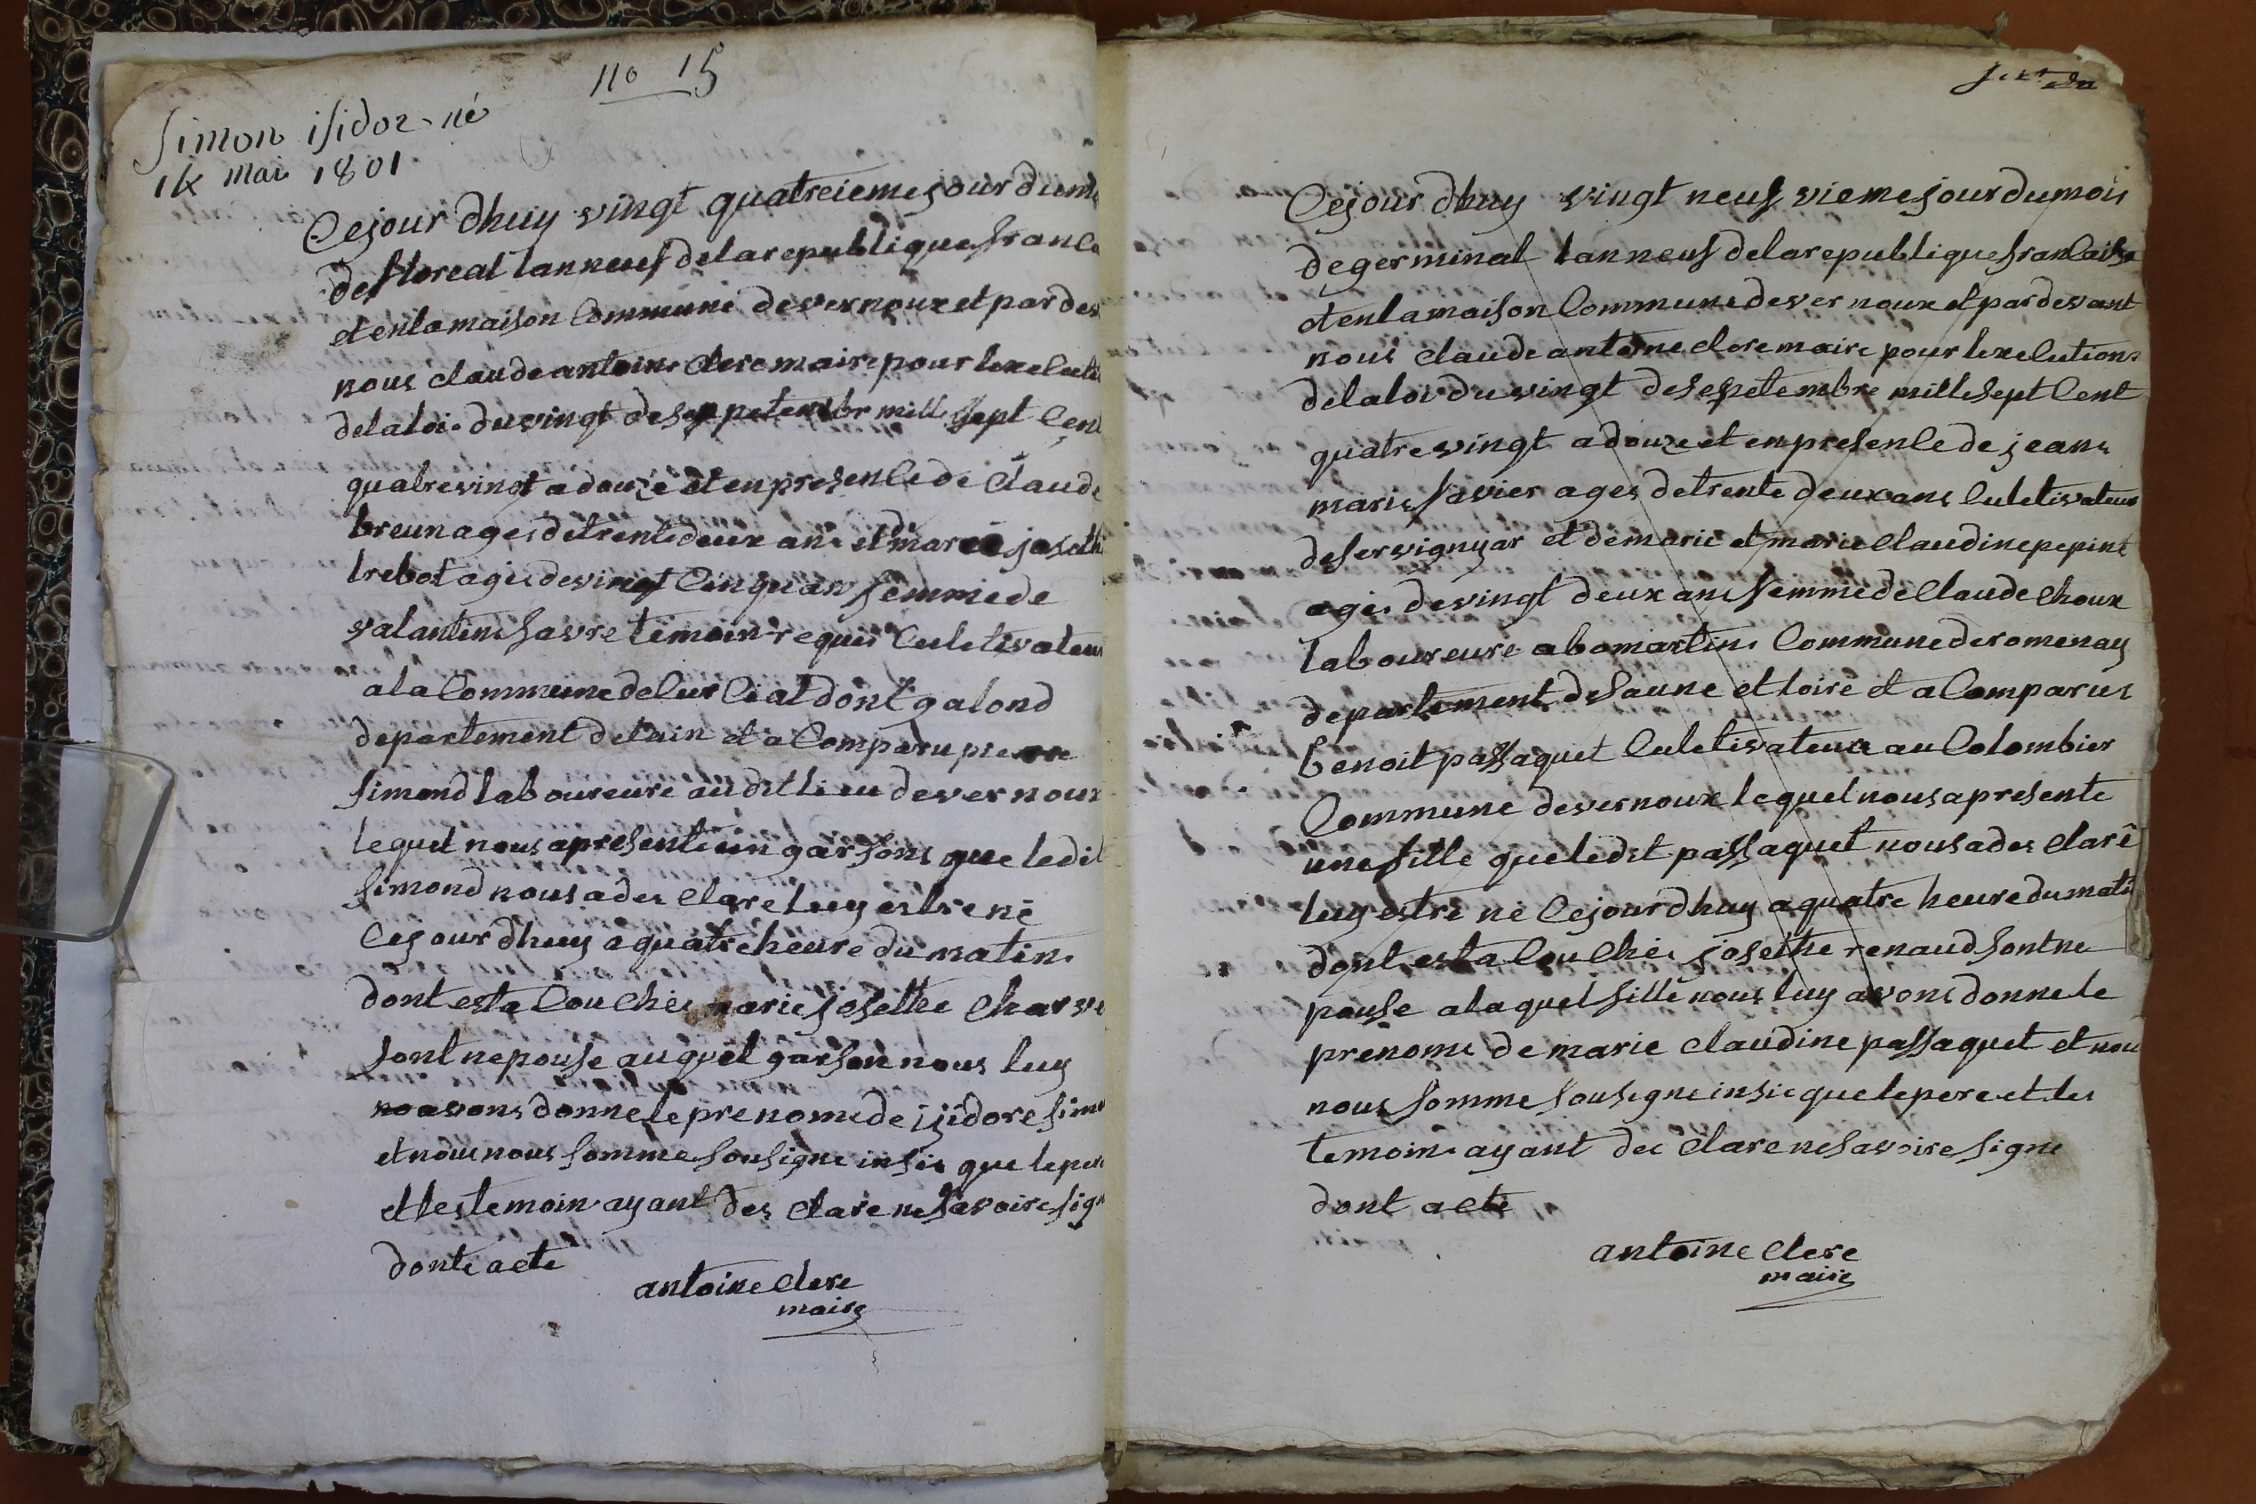 no 15
Simon isidor né
14 mai 1801
Cejour dhuy vingt quatreieme jour dumo
de floreal lanneuf delarepublique franca
et enlamaison Commune devernoux et pardev
nous claude antoine clere maire pour lexecuti
delaloi du vingt de seppetembr mille sept Cent
quatrevingt adouze et enpresence de Claude
breun ages detrente deux ans et marie josethe
trebot agée devingt Cinquans femmede
valantin favre temoin requis Culetivateur
ala Commune deCurCiat dont galond
departement delain et a Comparu pierre
Simond laboureure audit lieu devernoux
lequel nous apresente un garsons que ledit
Simond nousades clare luy estre né
Cejour dhuy a quatre heure dumatin
dont esta Couchée marie josethe Charve
sont nepouse auquel garson nous luy
avons donne le prenome de isidore Simo
et nous nous somme sousigne insie que lepere
et les temoin ayant des clare ne savoire sign
dont acte
antoine clere
maire
Cejour dhuy vingt neuf vieme jour dumois
degerminal lanneuf delarepublique francaise
et enlamaison Commune devernoux et pardevant
nous claude antoine clere maire pour lexecution
delaloi du vingt desepetembre mille sept Cent
quatrevingt adouze et enpresence de jean
marie favier ages detrente deux ans Culetivateur
deservignyar et demarie et marie claudine pepine
agée devingt deux ans femmede Claude Choux
laboureure abomartin Commune deromenay
departement desaune et loire et a Comparus
benoit passaquet Culetivateure au Colombier
Commune devernoux lequel nous apresente
une fille queledit passaquet nousades clarê
luy estre né Cejour dhuy a quatre heure dumati
dont esta Couchée josethe renaud sont ne
pouse alaquel fille nous luy avons donne le
prenome de marie claudine passaquet et nou
nous somme sousigne insie que lepere et les
temoin ayant dec clare ne savoire signe
dont acte
antoine clere
maire